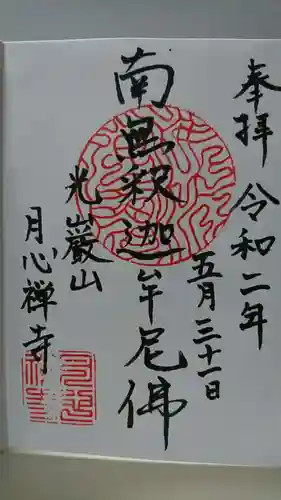 奉拝 令和二年
五月三十一日
南無釈迦牟尼佛
光巖山
月心禅寺